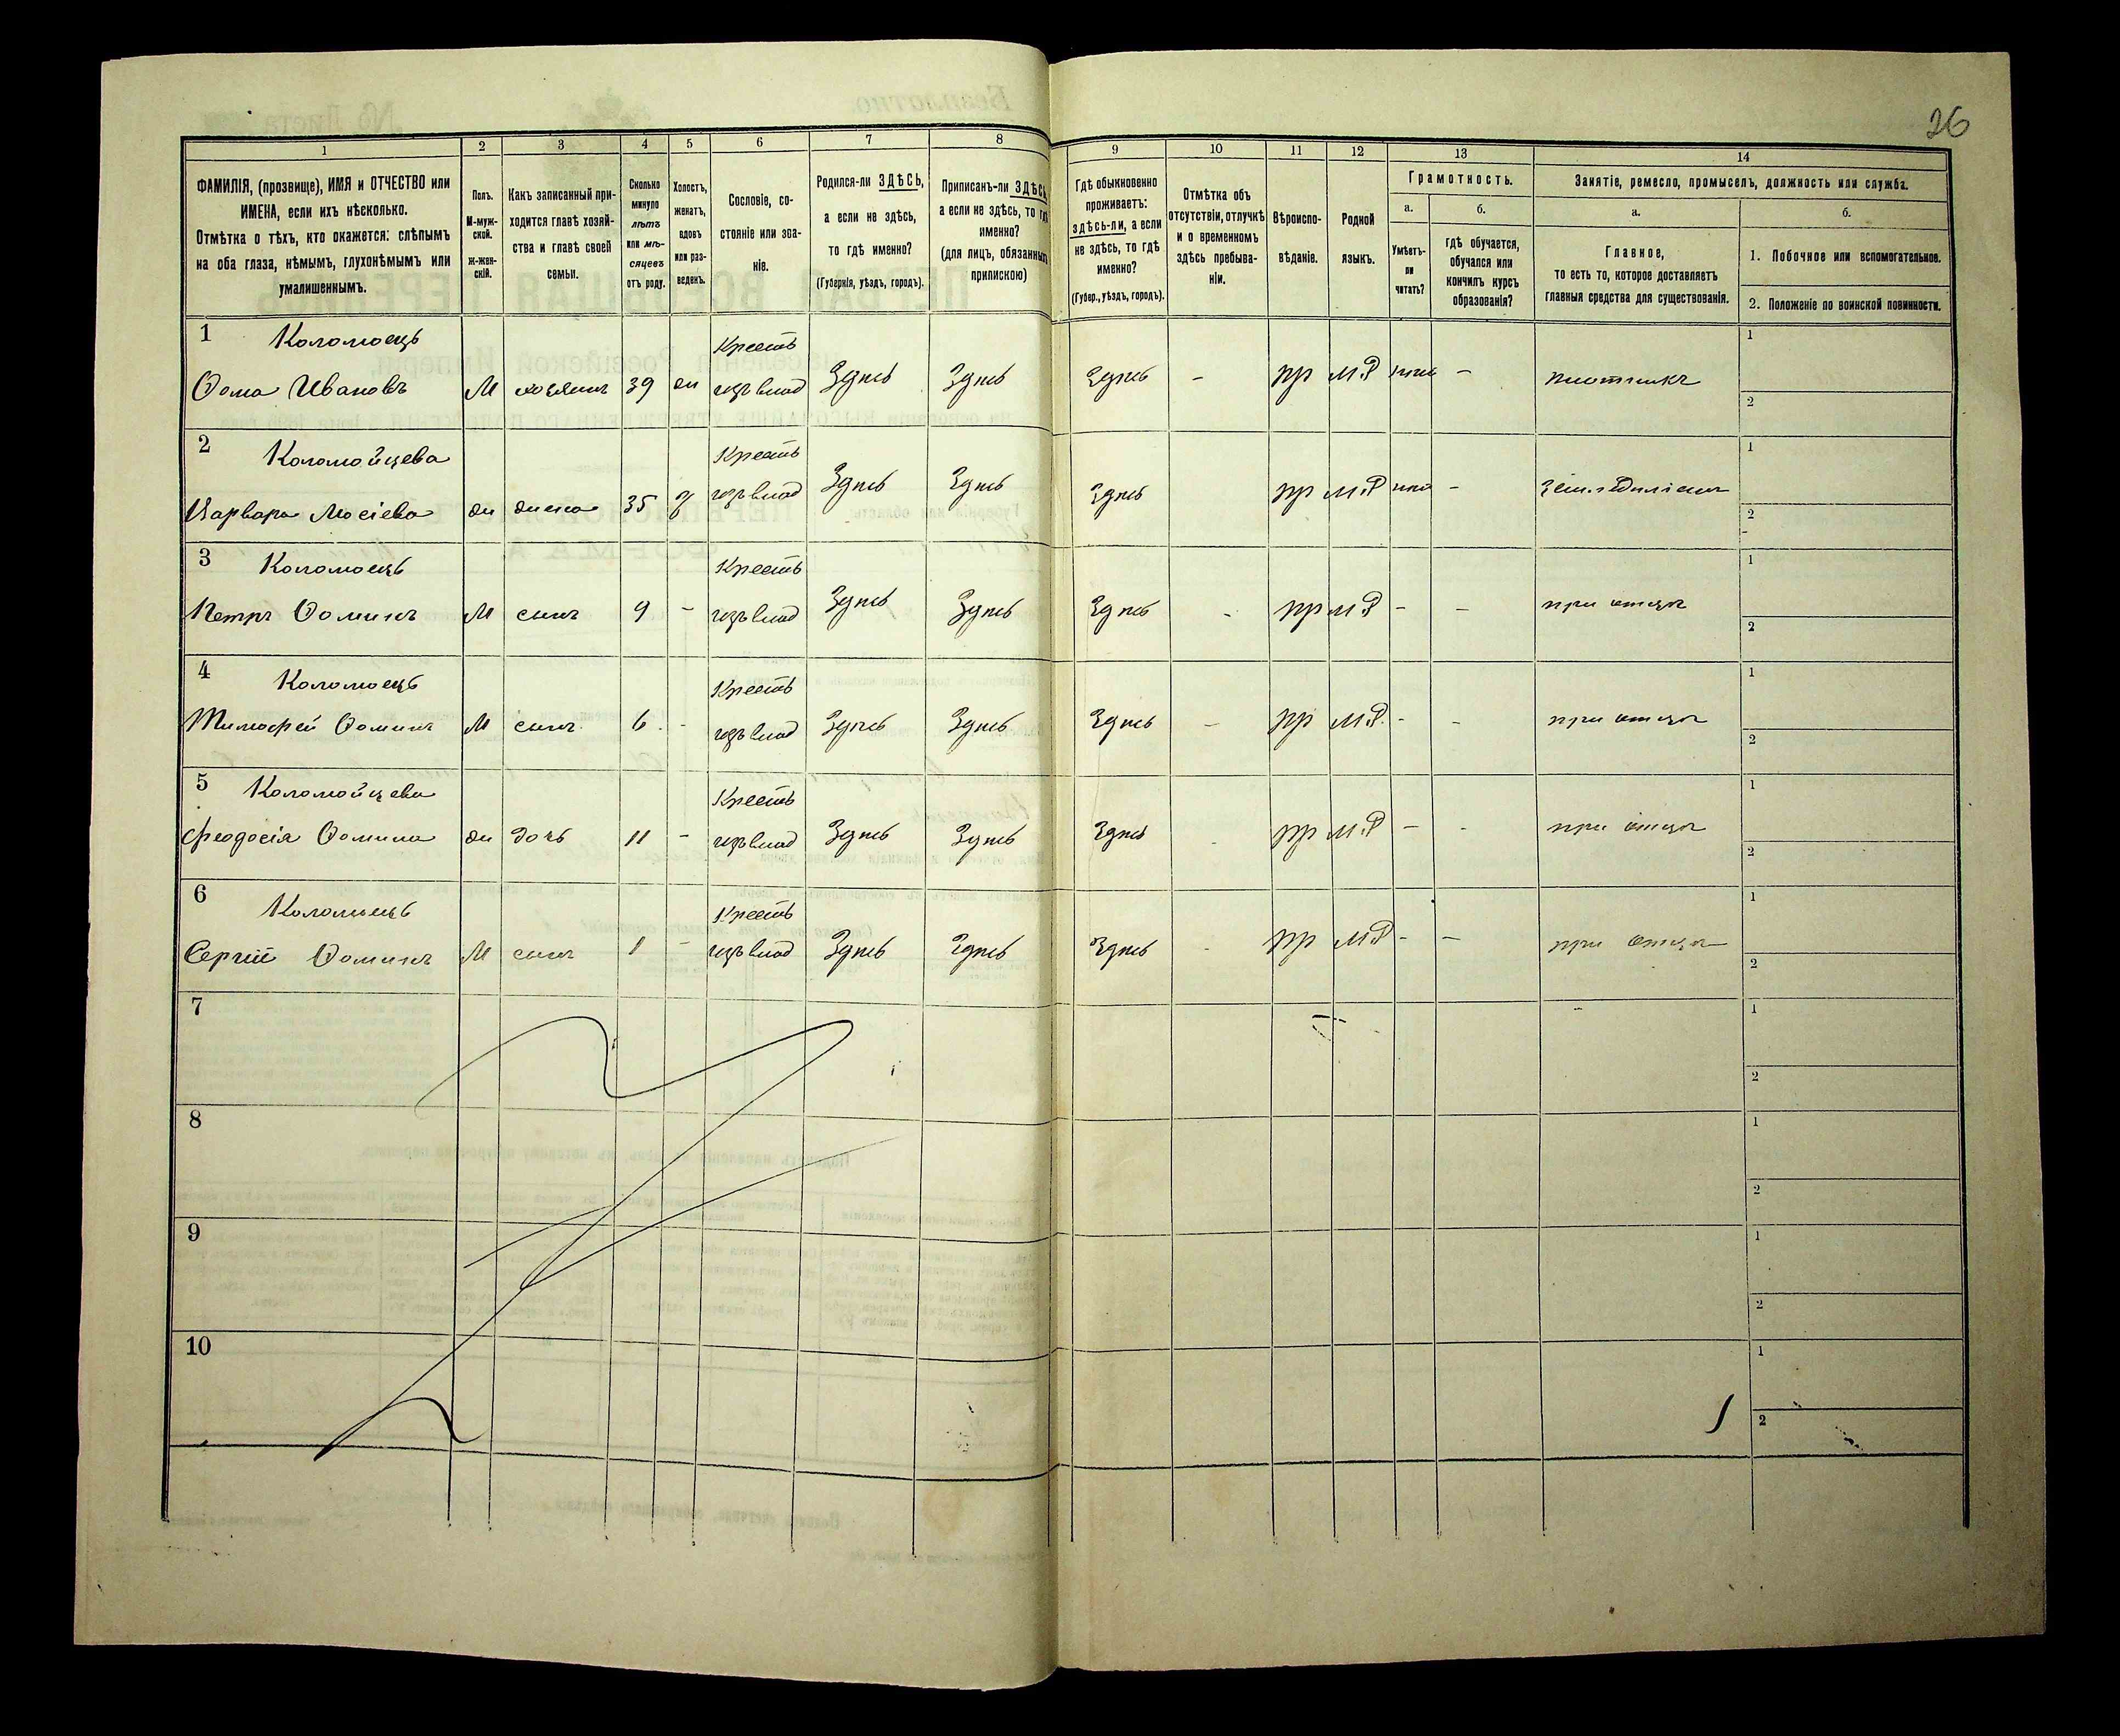 26
1 2 3 4 5 6 7 8 9 10 11 12 13 14
ФАМИЛІЯ, (прозвище), ИМЯ и ОТЧЕСТВО или
ИМЕНА, если ихъ нѣсколько.
Отмѣтка о тѣхъ, кто окажется: слѣпымъ
на оба глаза, нѣмымъ, глухонѣмымъ или
умалишеннымъ.
Полъ.
М-муж-
ской.
Ж-жен-
скій.
Какъ записанный при-
ходится главѣ хозяй-
ства и главѣ своей
семьи.
Сколько
минуло
лѣтъ
или мѣ-
сяцевъ
отъ роду.
Холостъ,
женатъ,
вдовъ
или раз-
веденъ.
Сословіе, со-
стояніе или зва-
ніе.
Родился-ли ЗДѢСЬ,
а если не здѣсь,
то гдѣ именно?
(Губернія, уѣздъ, городъ).
Приписанъ-ли ЗДѢСЬ,
а если не здѣсь, то гдѣ
именно?
(для лицъ, обязанныхъ
припискою)
Гдѣ обыкновенно
проживаетъ:
здѣсь-ли, а если
не здѣсь, то гдѣ
именно?
(Губер., уѣздъ, городъ).
Отмѣтка объ
отсутствіи, отлучкѣ
и о временномъ
здѣсь пребыва-
ніи.
Вѣроиспо-
вѣданіе.
Родной
языкъ.
Грамотность.
а.
Умѣетъ-
ли
читать?
б.
гдѣ обучается,
обучался или
кончилъ курсъ
образованія?
Занятіе, ремесло, промыселъ, должность или служба.
а.
Главное,
то есть то, которое доставляетъ
главныя средства для существованія.
б.
1. Побочное или вспомогательное.
2. Положеніе по воинской повинности.
1 Коломоецъ Крестъ 1
Ѳома Ивановъ М хозяинъ 39 ж изъ влад Здѣсь Здѣсь Здѣсь - пр М.Р нѣтъ - плотникъ 2
2 Коломойцева Крестъ 1
Варвара Мосіева ж жена 35 з изъ влад Здѣсь Здѣсь Здѣсь пр М.Р нѣтъ - земледѣліемъ 2
3 Коломоецъ Крестъ 1
Петръ Ѳоминъ М сынъ 9 - изъ влад Здѣсь Здѣсь Здѣсь - пр М.Р - - при отцѣ 2
4 Коломоецъ Крестъ 1
Тимофей Ѳоминъ М сынъ 6 - изъ влад Здѣсь Здѣсь Здѣсь - пр М.Р - - при отцѣ 2
5 Коломойцева Крестъ 1
Феодосія Ѳомина ж дочь 11 - изъ влад Здѣсь Здѣсь Здѣсь - пр М.Р - - при отцѣ 2
6 Коломоецъ Крестъ 1
Сергій Ѳоминъ М сынъ 1 - изъ влад Здѣсь Здѣсь Здѣсь - пр М.Р - - при отцѣ 2
7 1
2
8 1
2
9 1
2
10 1
2